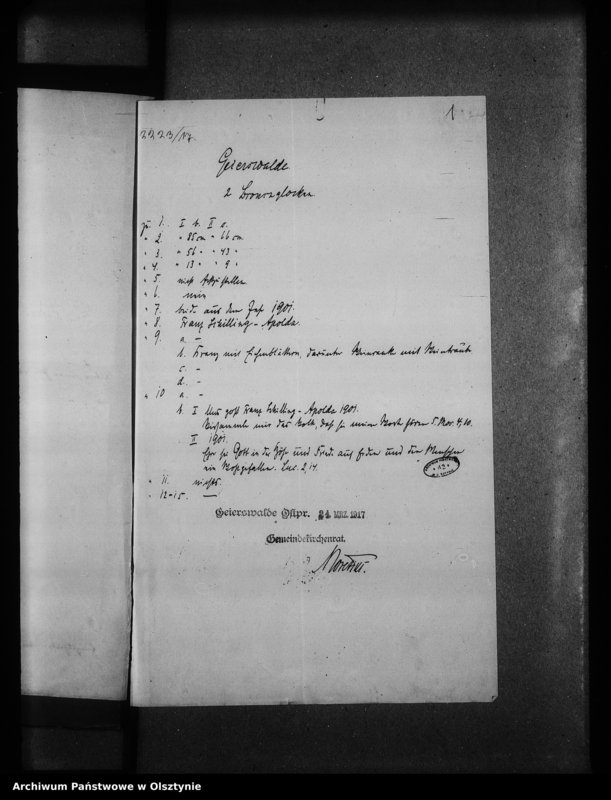 1
2223/17.
Geierswalde
2 Bronzeglocken
zu 1. I h. II a.
" 2. " 85 cm " 66 cm
" 3. " 56 " " 43 "
" 4. " 13 " " 9 "
" 5. nicht
" 6. nein
" 7. beide aus dem Jahr 1901.
" 8. Franz Schilling - Apolda.
" 9. a. -
b. Kranz mit Eichenblättern, darunter Weinranke mit Weintraube
c. -
d. -
" 10 a. -
b. I Mich goß Franz Schilling - Apolda 1901.
Versammle mir das Volk, daß sie meine Worte hören 5. Mos. 4, 10.
II 1901.
Ehre sei Gott in der Höhe und Friede auf Erden und den Menschen
ein Wohlgefallen. Luc. 2, 14.
" 11. nichts.
" 12-15. —
Geierswalde Ostpr. 24. MRZ. 1917
Gemeindekirchenrat.
Archiwum Państwowe w Olsztynie